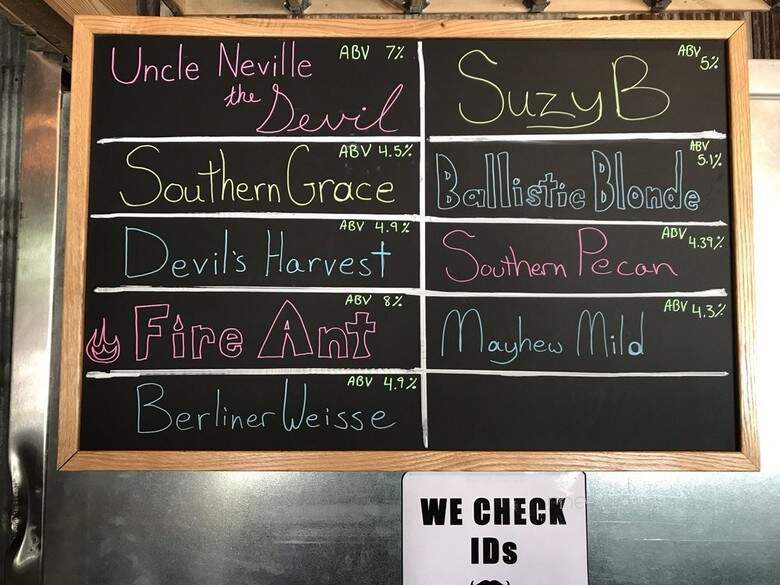 Uncle Neville ABV 7%
the Devil
Southern Grace ABV 4.5%
Devil's Harvest ABV 4.9%
Fire Ant ABV 8%
Berliner Weisse ABV 4.9%
Suzy B ABV 5%
Ballistic Blonde ABV 5.1%
Southern Pecan ABV 4.39%
Mayhew Mild ABV 4.3%
WE CHECK
IDs